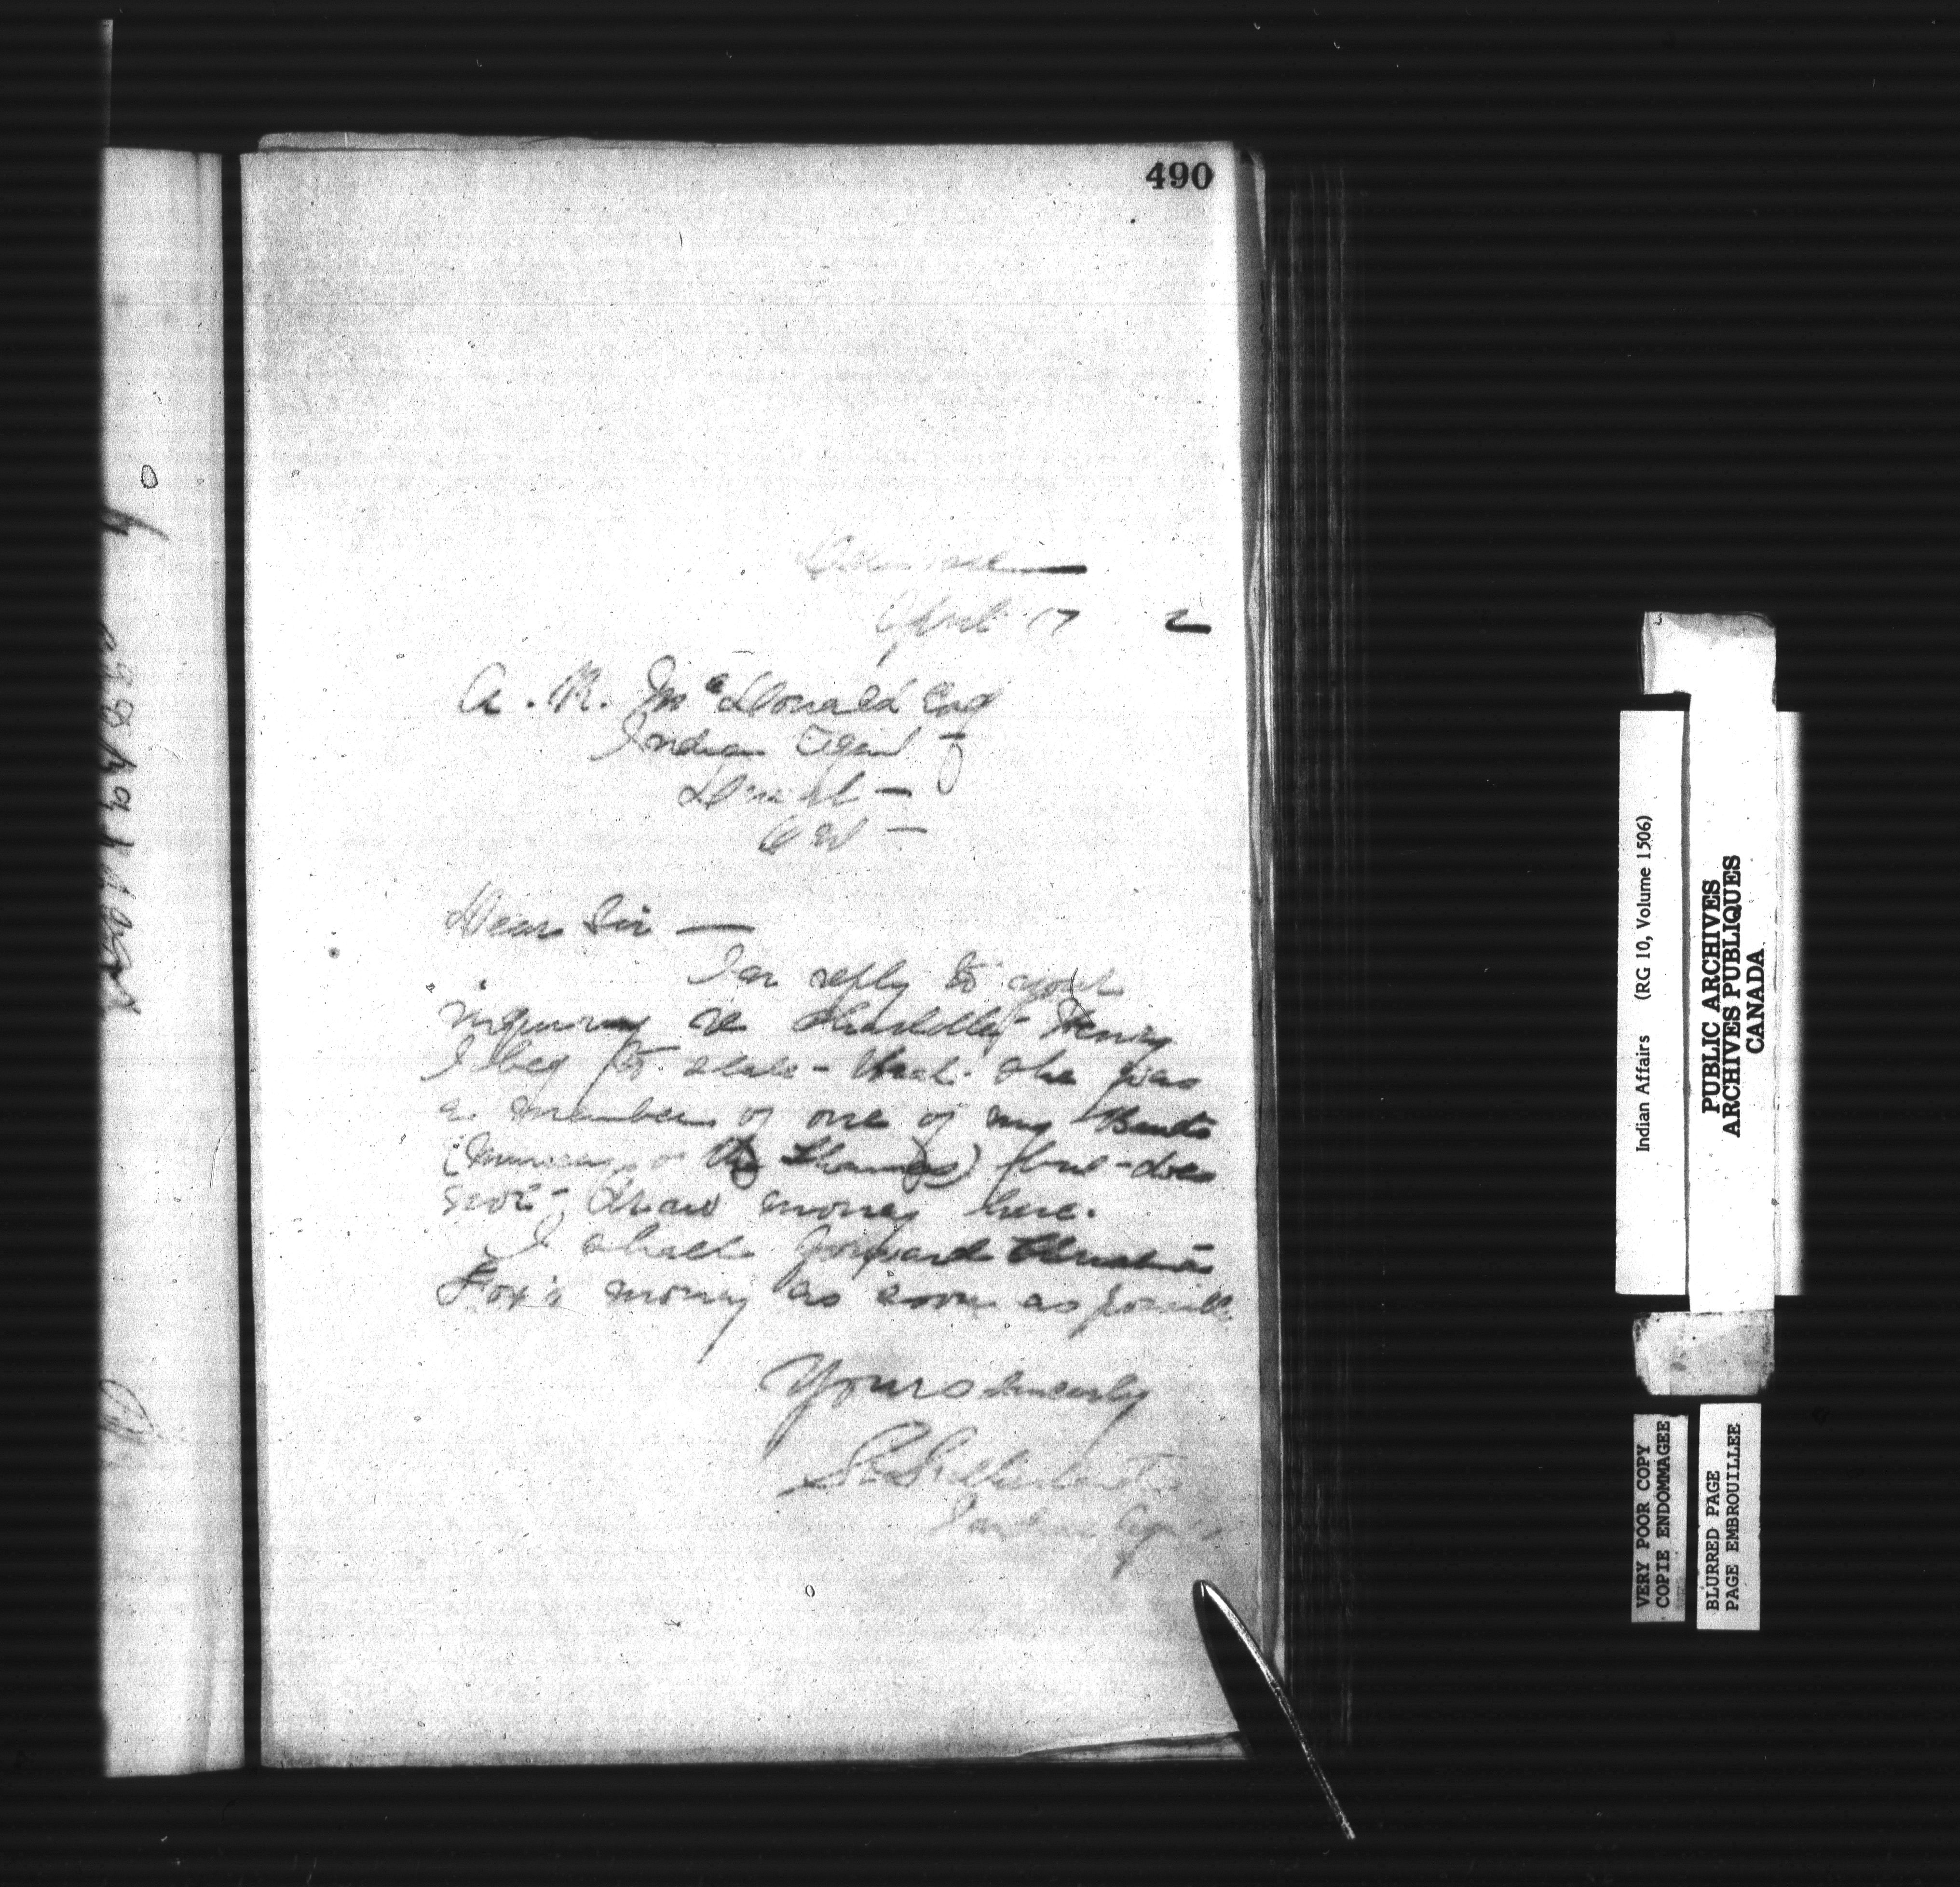 490
Delaware
April 17 2
A. R. McDonald Esq
Indian Agent
Ont
Dear Sir —
In reply to your
inquiry re Charlotte Henry
I beg to state - that she was
a member of one of my Bands
(Munceys of the Thames) but - does
not - draw money here.
I shall forward
Fox's money as soon as possible
Yours sincerely
Indian Agent
Indian Affairs (RG 10, Volume 1506)
PUBLIC ARCHIVES
ARCHIVES PUBLIQUES
CANADA
VERY POOR COPY
COPIE ENDOMMAGEE
BLURRED PAGE
PAGE EMBROUILLEE